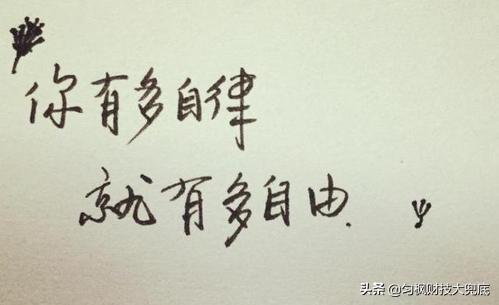 你有多自律
就有多自由.
头条@匀枫财技大兜底